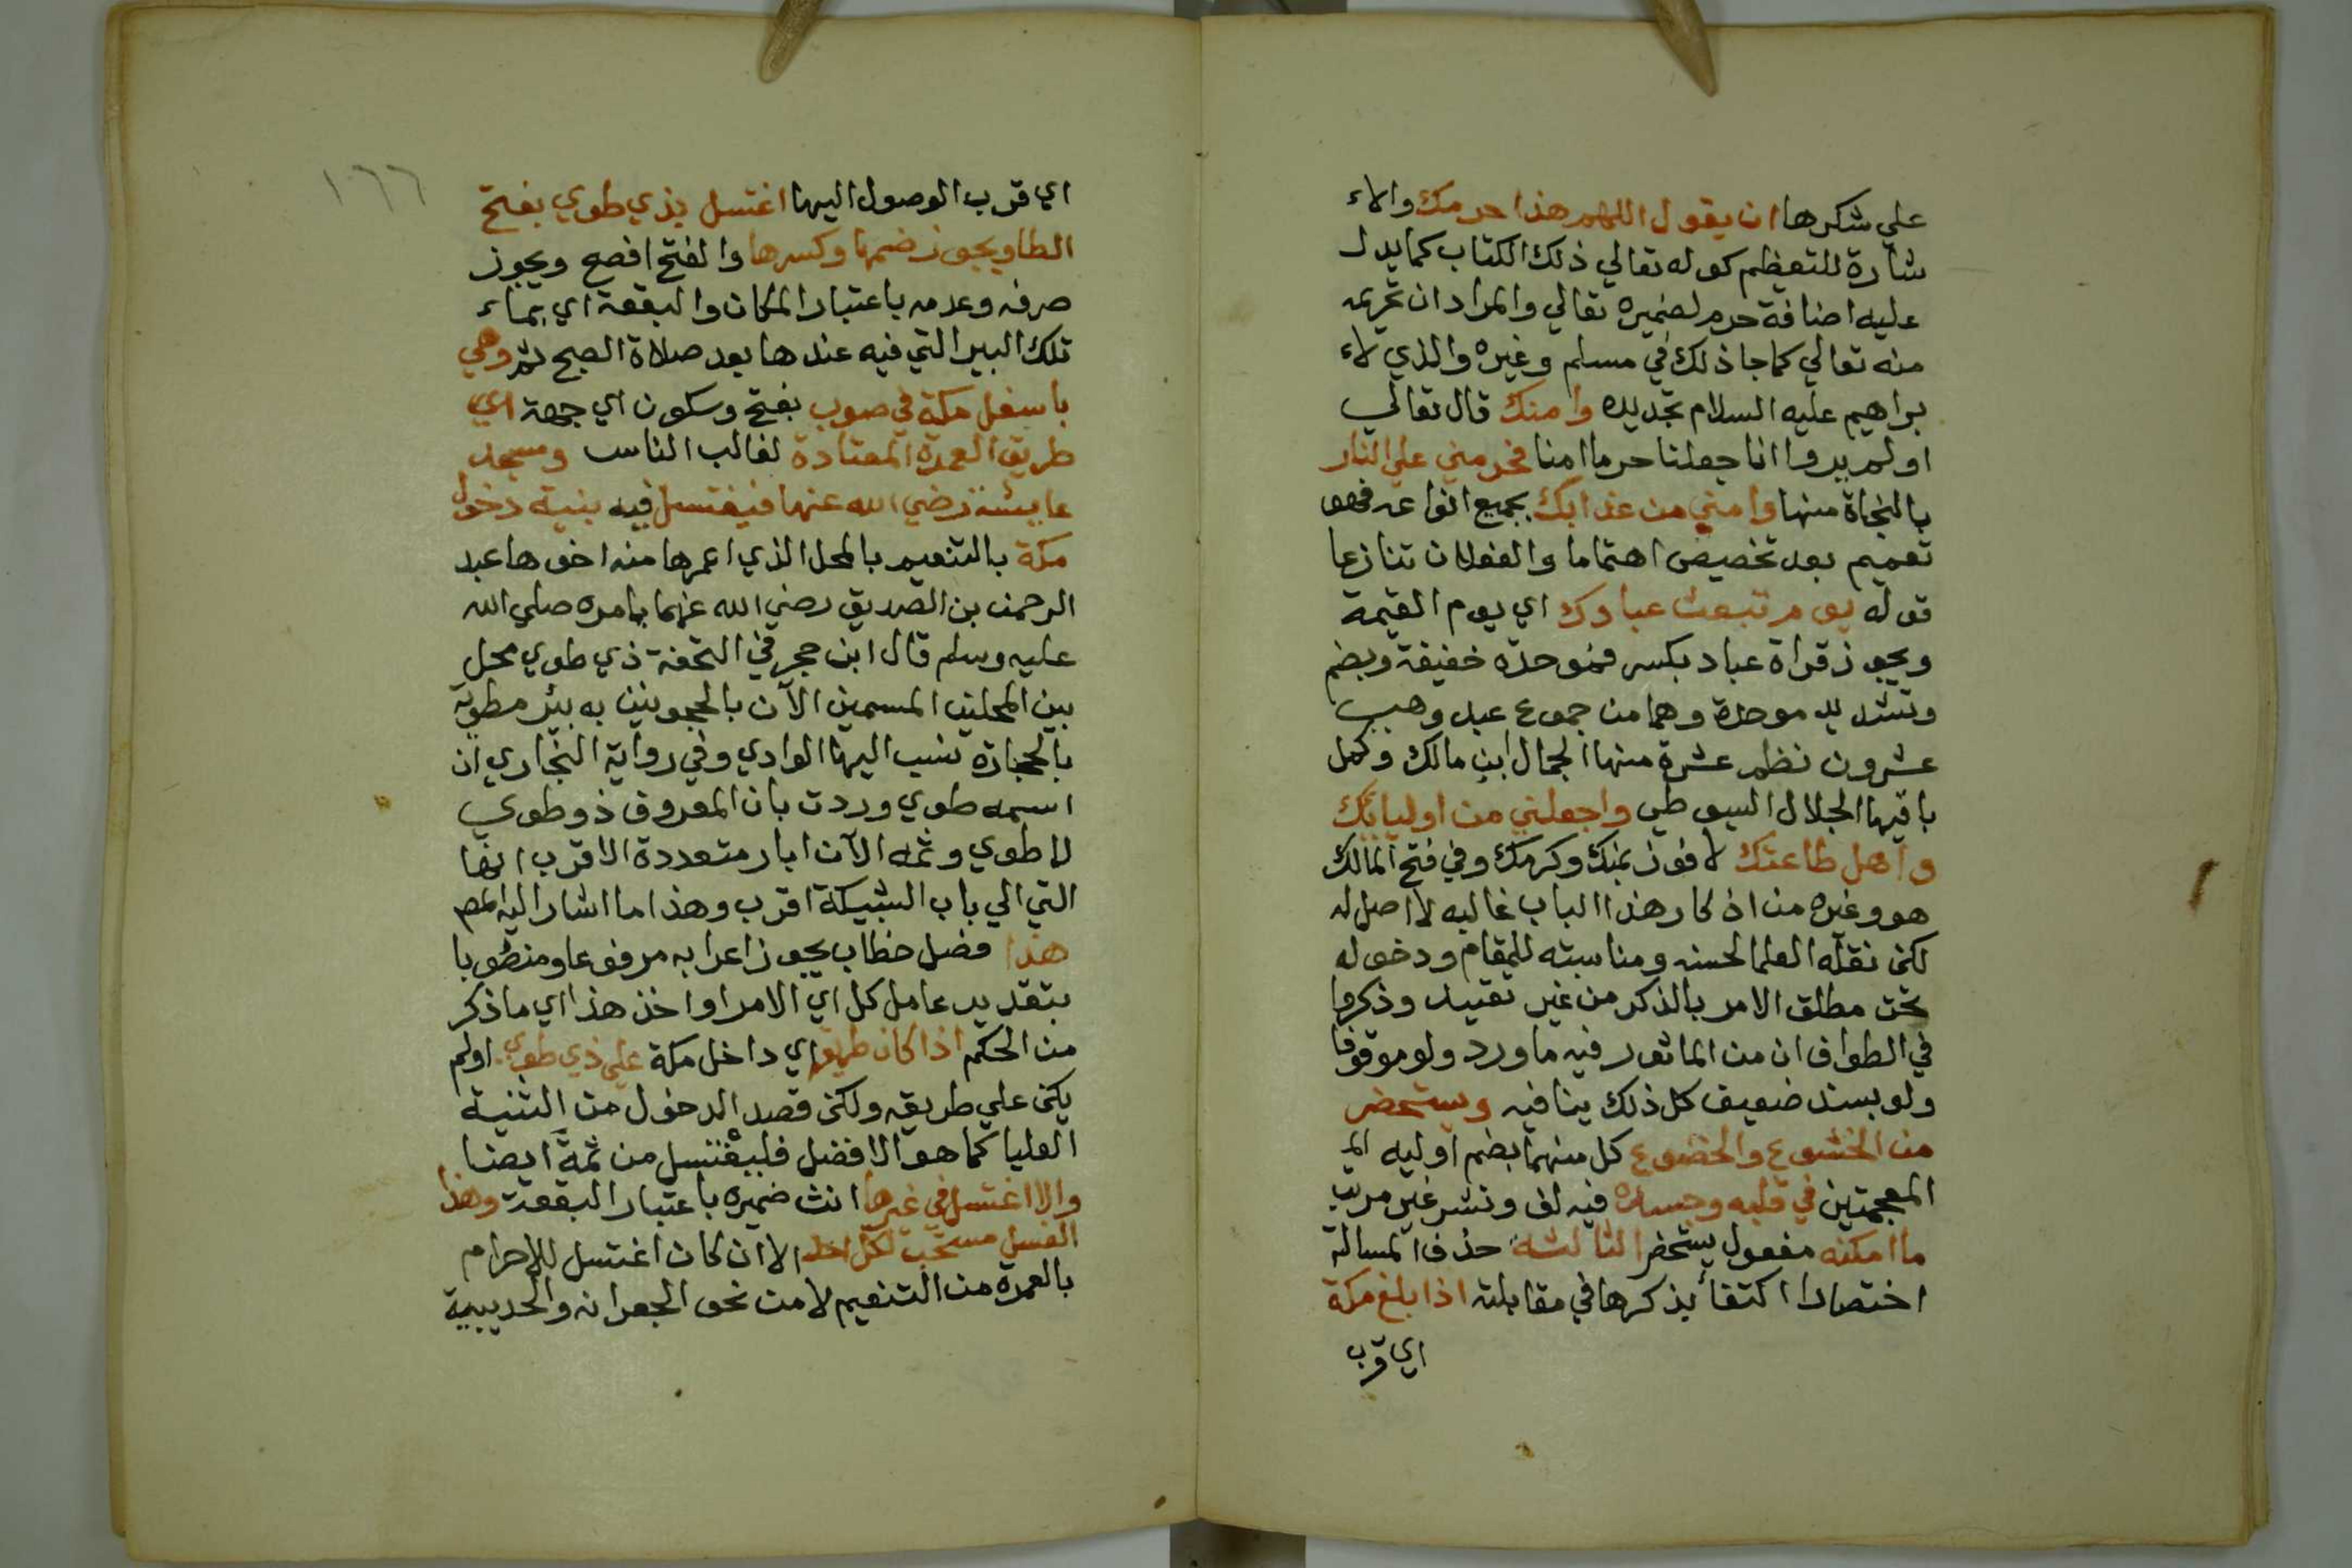 علي شكرها ان يقول اللهم هذا حرمك والاء
شارة للتعظيم كوله تعالي ذلك الكتاب كما يدل
عليه اضافة حرم لضميره تعالي والمراد ان تحريمه
منه تعالي كما جا ذلك في مسلم وغيره والذي لاء
براهيم عليه السلام تجديده وامنك قال تعالي
اولم يروا انا جعلنا حرما امنا فحرمني علي النار
بالنجاة منها وامني من عذابك بجميع انواعه فهو
تعميم بعد تخصيص اهتماما والفعلان تنازعا
قوله يوم تبعث عبادك اي يوم القيمة
ويجوز قراة عباد بكسر فموحدة خفيفة وبضم
وتشديد موحدة وهما من جموع عبد وهي
عشرون نظم عشرة منها الجمال ابن مالك وكمل
باقيها الجلال السيوطي واجعلني من اوليائك
واهل طاعتك لافوز بمنك وكرمك وفي فتح المالك
هو وغيره من اذكار هذا الباب غالبه لا اصل له
لكن نقله العلما لحسنه ومناسبته للمقام ودخوله
تحت مطلق الامر بالذكر من غير تقييد وذكرها
في الطواف ان من الماثور فيه ما ورد ولو موقوفا
ولو بسند ضعيف كل ذلك ينافيه ويستحضر
من الخشوع والخضوع كل منهما بضم اوليه الم
المعجمتين في قلبه وجسده فيه لف ونشر غير مرتب
ما امكنه مفعول يستحضر الثالثة حذف المسالة
اختصارا اكتفأ بذكرها في مقابلته اذا بلغ مكة
اي قرب
١٦٦
اي قرب الوصول اليها اغتسل بذي طوي بفتح
الطا ويجوز ضمها وكسرها والفتح افصح ويجوز
صرفه وعدمه باعتبار المكان والبقعة اي بماء
تلك البير التي فيه عندها بعد صلاة الصبح ثم وهي
باسفل مكة في صوب بفتح وسكون اي جهة اي
طريق العمرة المعتادة لغالب الناس ومسجد
عايشة رضي الله عنها فيغتسل فيه بنية دخول
مكة بالتنعيم بالمحل الذي اعمرها منه اخوها عبد
الرحمن بن الصديق رضي الله عنهما بامره صلي الله
عليه وسلم قال ابن حجر في التحفة ذي طوي محل
بين المحلين المسمين الآن بالحجونين به بئر مطوية
بالحجارة نسب اليها الوادي وفي رواية البخاري ان
اسمه طوي وردت بان المعروف ذو طوي
لا طوي وثمه الآن ابار متعددة الاقرب انها
التي الي باب الشبيكة اقرب وهذا ما اشار اليه المص
هذا فصل خطاب يجوز اعرابه مرفوعا ومنصوبا
بتقدير عامل كل اي الامر او اخذ هذا اي ما ذكر
من الحكم اذا كان طريق اي داخل مكة علي ذي طوي اولم
يكن علي طريقه ولكن قصد الدخول من الثنية
العليا كما هو الافضل فليغتسل من ثمة ايضا
والا اغتسل في غيرها انث ضميره باعتبار البقعة وهذا
الغسل مستحب لكل احد الا ان كان اغتسل للاحرام
بالعمرة من التنعيم لا من نحو الجعرانه والحديبية